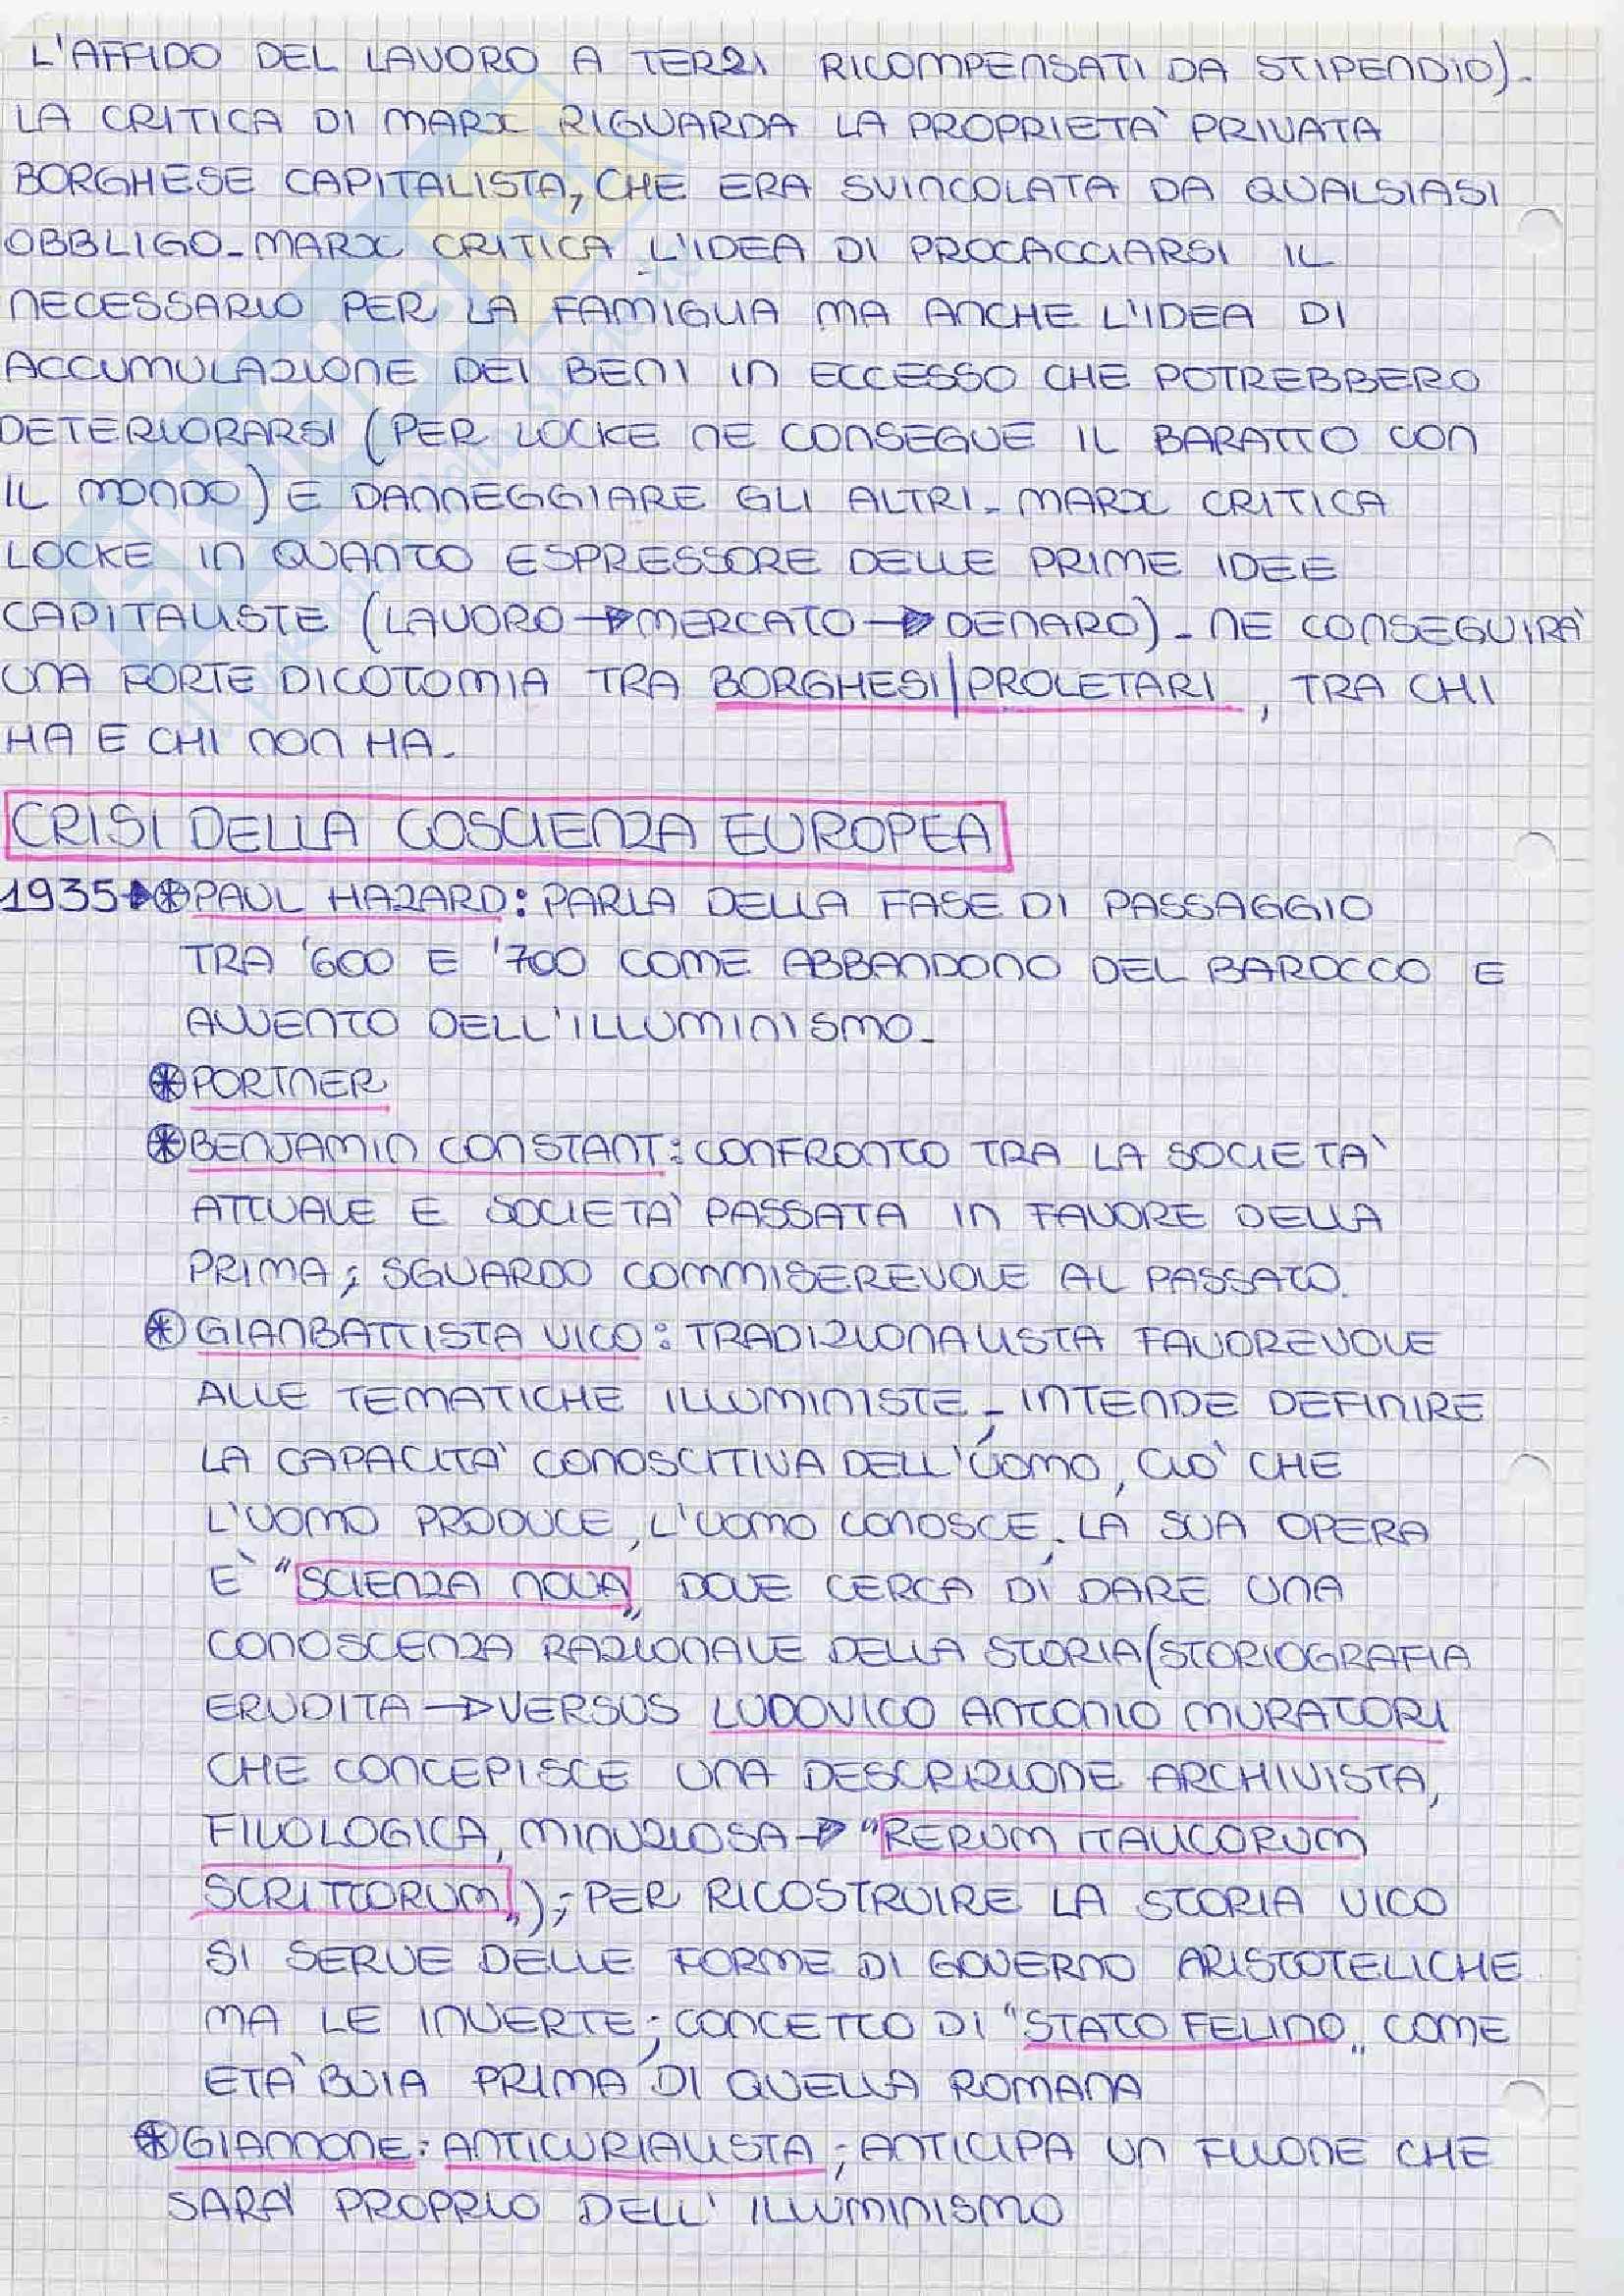 L'AFFIDO DEL LAVORO A TERZI RICOMPENSATI DA STIPENDIO).
LA CRITICA DI MARX RIGUARDA LA PROPRIETA' PRIVATA
BORGHESE CAPITALISTA, CHE ERA SVINCOLATA DA QUALSIASI
OBBLIGO. MARX CRITICA L'IDEA DI PROCACCIARSI IL
NECESSARIO PER LA FAMIGLIA MA ANCHE L'IDEA DI
ACCUMULAZIONE DEI BENI IN ECCESSO CHE POTREBBERO
DETERIORARSI (PER LOCKE NE CONSEGUE IL BARATTO CON
IL MONDO) E DANNEGGIARE GLI ALTRI. MARX CRITICA
LOCKE IN QUANTO ESPRESSORE DELLE PRIME IDEE
CAPITALISTE (LAVORO → MERCATO → DENARO). NE CONSEGUIRA'
UNA FORTE DICOTOMIA TRA BORGHESI/PROLETARI, TRA CHI
HA E CHI NON HA.
CRISI DELLA COSCIENZA EUROPEA
1935→ * PAUL HAZARD: PARLA DELLA FASE DI PASSAGGIO
TRA '600 E '700 COME ABBANDONO DEL BAROCCO E
AVVENTO DELL'ILLUMINISMO.
* PORTNER
* BENJAMIN CONSTANT: CONFRONTO TRA LA SOCIETA'
ATTUALE E SOCIETA' PASSATA IN FAVORE DELLA
PRIMA; SGUARDO COMMISEREVOLE AL PASSATO.
* GIANBATTISTA VICO: TRADIZIONALISTA FAVOREVOLE
ALLE TEMATICHE ILLUMINISTE; INTENDE DEFINIRE
LA CAPACITA' CONOSCITIVA DELL'UOMO, CIO' CHE
L'UOMO PRODUCE, L'UOMO CONOSCE; LA SUA OPERA
E' "SCIENZA NOVA" DOVE CERCA DI DARE UNA
CONOSCENZA RAZIONALE DELLA STORIA (STORIOGRAFIA
ERUDITA → VERSUS LUDOVICO ANTONIO MURATORI
CHE CONCEPISCE UNA DESCRIZIONE ARCHIVISTA,
FILOLOGICA, MINUZIOSA → "RERUM ITALICORUM
SCRITTORUM"); PER RICOSTRUIRE LA STORIA VICO
SI SERVE DELLE FORME DI GOVERNO ARISTOTELICHE
MA LE INVERTE; CONCETTO DI "STATO FELINO" COME
ETA' BUIA PRIMA DI QUELLA ROMANA
* GIANNONE: ANTICURIALISTA; ANTICIPA UN FILONE CHE
SARA' PROPRIO DELL'ILLUMINISMO